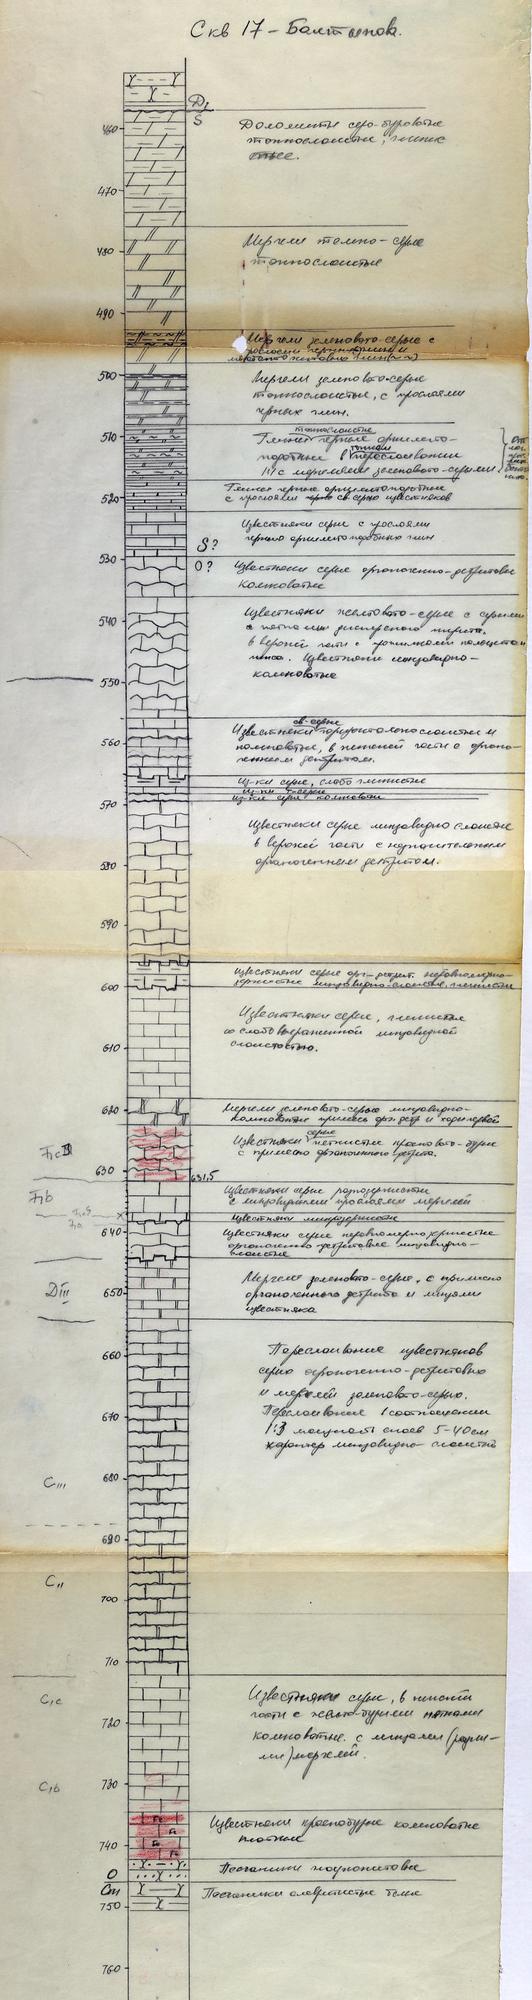 Скв 17 - Балтинова.
D1
S
460
Доломиты серо-буроватые
тонкослоистые,
470
480
Мергели темно-серые
тонкослоистые
490
Мергели зеленовато-серые с
500
Мергели зеленовато-серые
тонкослоистые, с прослоями
черных глин.
510
тонкослоистые
Глины черные аргиллито-
подобные в переслаивании
1:1 с мергелями зеленовато-серыми
Глины черные аргиллитоподобные
520
с прослоями св. серых известняков
Известняки серые с прослоями
черных аргиллитоподобных глин
S?
530
O?
Известняки серые органогенно-детритовые
комковатые
540
Известняки желтовато-серые с серыми
с пятнами дисперсного пирита.
в верхней части с прожилками
Известняки линзовидно-
550
комковатые
св-серые
560
Известняки горизонтальнослоистые и
комковатые, в нижней части с органо-
генным детритом.
Из-ки серые, слабо глинистые
570
Из-ки серые комковатые
Известняки серые линзовидно слоистые
580
в верхней части с незначительным
органогенным детритом.
590
Известняки серые орг-детрит. неравномерно-
600
зернистые линзовидно-слоистые, глинистые
Известняки серые, глинистые
со слабо выраженной линзовидной
610
слоистостью.
620
Мергели зеленовато-серые линзовидно-
комковатые примесь орг. детр и
серые
Известняки пятнистые красновато-бурые
с примесью органогенного детрита.
630
631,5
Известняки серые
с линзовидными прослоями мергелей
Известняки микрозернистые
640
Известняки серые неравномернозернистые
органогенно-детритовые линзовидно-
слоистые
DIII
650
Мергели зеленовато-серые, с примесью
органогенного детрита и линзами
известняка
660
Переслаивание известняков
серых органогенно-детритовых
и мергелей зеленовато-серых.
670
Переслаивание в соотношении
1:3 мощность слоев 5-40см
характер линзовидно-слоистый
CIII
680
690
CII
700
710
C1c
Известняки серые, в нижней
части с желто-бурыми пятнами
720
комковатые. с линзами
мергелей.
C1b
730
Fe
Известняки краснобурые комковатые
плотные
Fe
740
Fe
Fe
Песчаники
O
Cm
Песчаники алевритистые белые
750
760